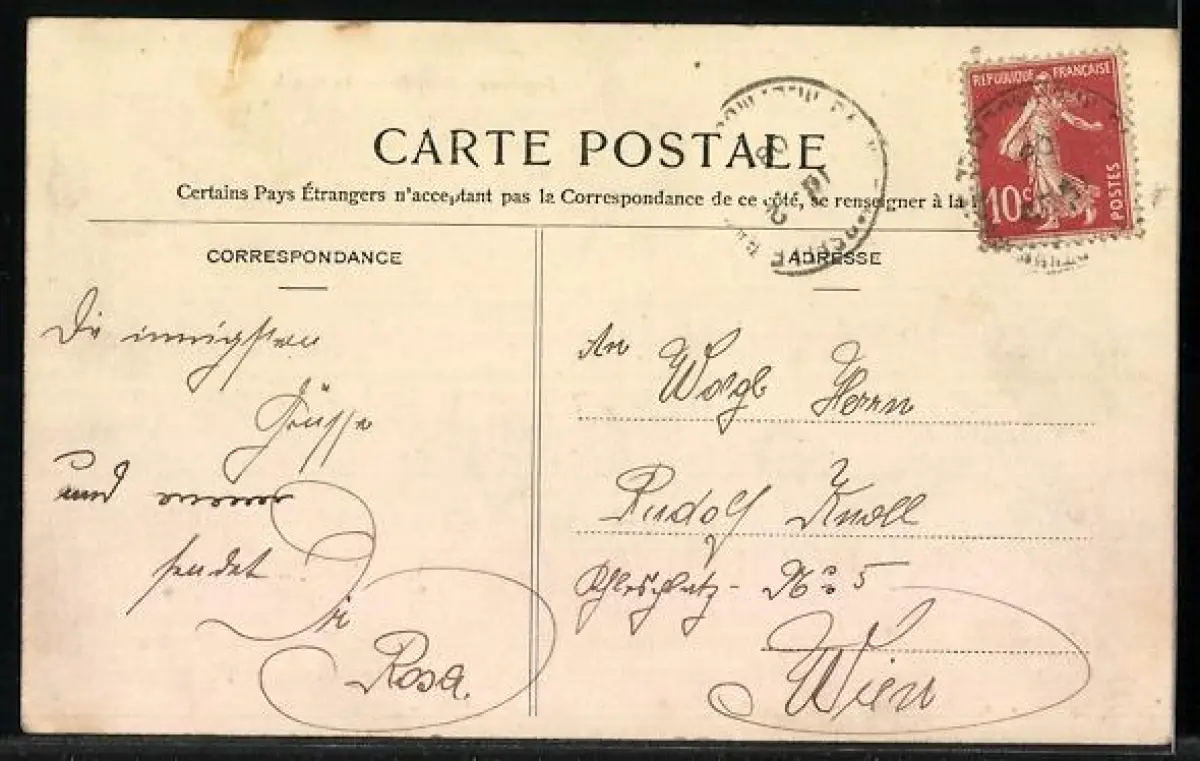 CARTE POSTALE
Certains Pays Étrangers n'acceptant pas la Correspondance de ce côté, se renseigner à la
RÉPUBLIQUE FRANÇAISE
10c
POSTES
CORRESPONDANCE
Die innigsten
Grüsse
und
sendet
Dir
Rosa.
ADRESSE
An Wolgb Herrn
Rudolf Knoll
No 5
Wien